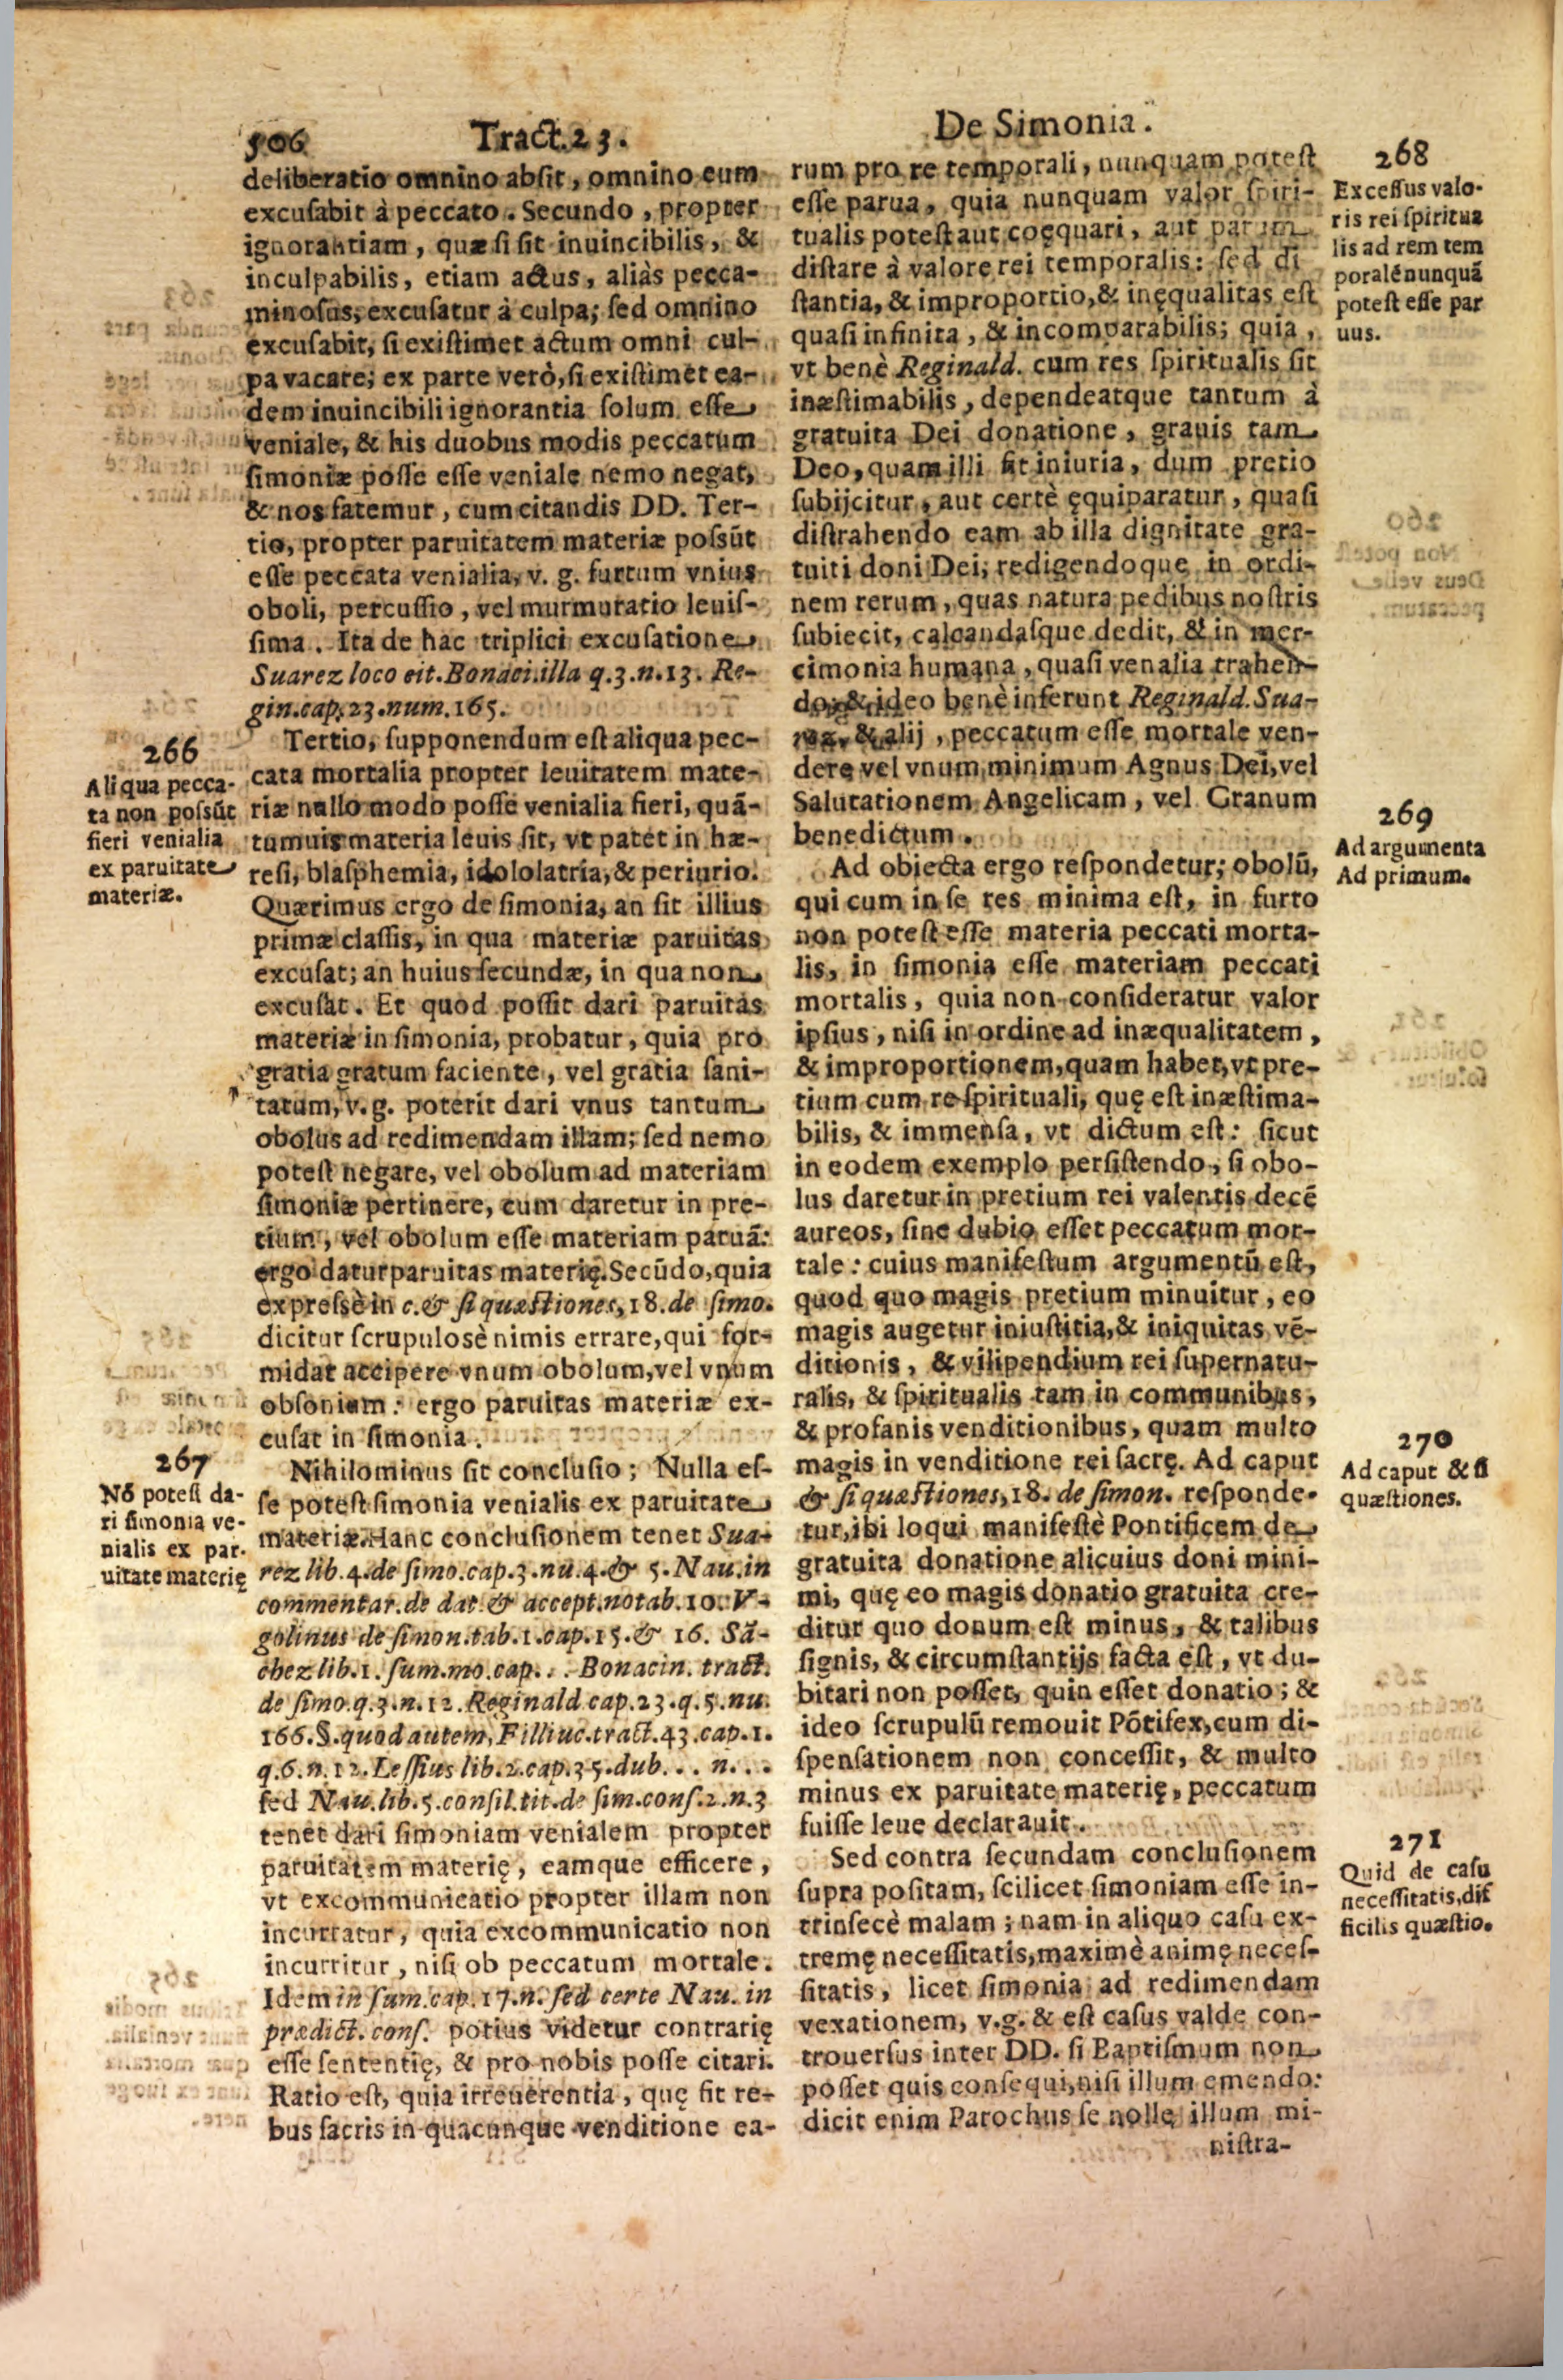 506 Tract. 23. De Simonia.
deliberatio omnino absit, omnino eum
excusabit à peccato. Secundo, propter
ignorantiam, quæ si sit inuincibilis, &
inculpabilis, etiam actus, aliàs pecca-
minosus, excusatur à culpa; sed omnino
excusabit, si existimet actum omni cul-
pa vacare; ex parte verò, si existimet ea-
dem inuincibili ignorantia solum esse
veniale, & his duobus modis peccatum
simoniæ posse esse veniale nemo negat,
& nos fatemur, cum citandis DD. Ter-
tio, propter paruitatem materiæ possũt
esse peccata venialia, v. g. furtum vnius
oboli, percussio, vel murmuratio leuis-
sima. Ita de hac triplici excusatione
Suarez loco cit. Bonaci. illa q.3.n.13. Re-
gin.cap.23.num.165.
266
Aliqua pecca-
ta non possũt
fieri venialia
ex paruitate
materiæ.
Tertio, supponendum est aliqua pec-
cata mortalia propter leuitatem mate-
riæ nullo modo posse venialia fieri, quã-
tumuis materia leuis sit, vt patet in hæ-
resi, blasphemia, idololatria, & periurio.
Quærimus ergo de simonia, an sit illius
primæ classis, in qua materiæ paruitas
excusat; an huius secundæ, in qua non
excusat. Et quod possit dari paruitas
materiæ in simonia, probatur, quia pro
gratia gratum faciente, vel gratia sani-
tatum, v.g. poterit dari vnus tantum
obolus ad redimendam illam; sed nemo
potest negare, vel obolum ad materiam
simoniæ pertinere, cum daretur in pre-
tium, vel obolum esse materiam paruã:
ergo datur paruitas materię. Secũdo, quia
expressè in c.& si quæstiones, 18.de simo.
dicitur scrupulosè nimis errare, qui for-
midat accipere vnum obolum, vel vnum
obsonium: ergo paruitas materiæ ex-
cusat in simonia.
267
Nõ potest da-
ri simonia ve-
nialis ex par-
uitate materię
Nihilominus sit conclusio; Nulla es-
se potest simonia venialis ex paruitate
materiæ. Hanc conclusionem tenet Sua-
rez lib.4.de simo.cap.3.nu.4.& 5. Nau.in
commentar.de dat.& accept.notab.10. V-
golinus de simon.tab.1.cap.15.& 16. Sã-
chez lib.1. sum.mo.cap. . . Bonacin. tract.
de simo.q.3.n.12. Reginald cap.23.q.5.nu.
166.§.quod autem, Filliuc.tract.43.cap.1.
q.6.n.12. Lessius lib.2.cap.35.dub. . . n. . .
sed Nau.lib.5.consil.tit.de sim.cons.2.n.3
tenet dari simoniam venialem propter
paruitatem materię, eamque efficere,
vt excommunicatio propter illam non
incurratur, quia excommunicatio non
incurritur, nisi ob peccatum mortale.
Idem in sum.cap.17.n. sed certe Nau. in
prædict. cons. potius videtur contrarię
esse sententię, & pro nobis posse citari.
Ratio est, quia irreuerentia, quę fit re-
bus sacris in quacunque venditione ea-
rum pro re temporali, nunquam potest
esse parua, quia nunquam valor spiri-
tualis potest aut coęquari, aut parum
distare à valore rei temporalis: sed di
stantia, & improportio, & inęqualitas est
quasi infinita, & incomparabilis; quia,
vt benè Reginald. cum res spiritualis sit
inæstimabilis, dependeatque tantum à
gratuita Dei donatione, grauis tam
Deo, quam illi sit iniuria, dum pretio
subijcitur, aut certè ęquiparatur, quasi
distrahendo eam ab illa dignitate gra-
tuiti doni Dei, redigendoque in ordi-
nem rerum, quas natura pedibus nostris
subiecit, calcandasque dedit, & in mer-
cimonia humana, quasi venalia trahen-
do; & ideo benè inferunt Reginald. Sua-
rez, & alij, peccatum esse mortale ven-
dere vel vnum minimum Agnus Dei, vel
Salutationem Angelicam, vel Granum
benedictum.
268
Excessus valo-
ris rei spiritua
lis ad rem tem
poralẽ nunquã
potest esse par
uus.
269
Ad argumenta
Ad primum.
Ad obiecta ergo respondetur; obolũ,
qui cum in se res minima est, in furto
non potest esse materia peccati morta-
lis, in simonia esse materiam peccati
mortalis, quia non consideratur valor
ipsius, nisi in ordine ad inæqualitatem,
& improportionem, quam habet, vt pre-
tium cum re spirituali, quę est inæstima-
bilis, & immensa, vt dictum est: sicut
in eodem exemplo persistendo, si obo-
lus daretur in pretium rei valentis decẽ
aureos, sine dubio esset peccatum mor-
tale: cuius manifestum argumentũ est,
quod quo magis pretium minuitur, eo
magis augetur iniustitia, & iniquitas vẽ-
ditionis, & vilipendium rei supernatu-
ralis, & spiritualis tam in communibus,
& profanis venditionibus, quam multo
magis in venditione rei sacrę. Ad caput
& si quæstiones, 18. de simon. responde-
tur, ibi loqui manifestè Pontificem de
gratuita donatione alicuius doni mini-
mi, quę eo magis donatio gratuita cre-
ditur quo donum est minus, & talibus
signis, & circumstantijs facta est, vt du-
bitari non posset, quin esset donatio; &
ideo scrupulũ remouit Põtifex, cum di-
spensationem non concessit, & multo
minus ex paruitate materię, peccatum
fuisse leue declarauit.
270
Ad caput & si
quæstiones.
271
Quid de casu
necessitatis, dif
ficilis quæstio.
Sed contra secundam conclusionem
supra positam, scilicet simoniam esse in-
trinsecè malam; nam in aliquo casu ex-
tremę necessitatis, maximè animę neces-
sitatis, licet simonia ad redimendam
vexationem, v.g. & est casus valde con-
trouersus inter DD. si Baptismum non
posset quis consequi, nisi illum emendo:
dicit enim Parochus se nolle illum mi-
nistra-